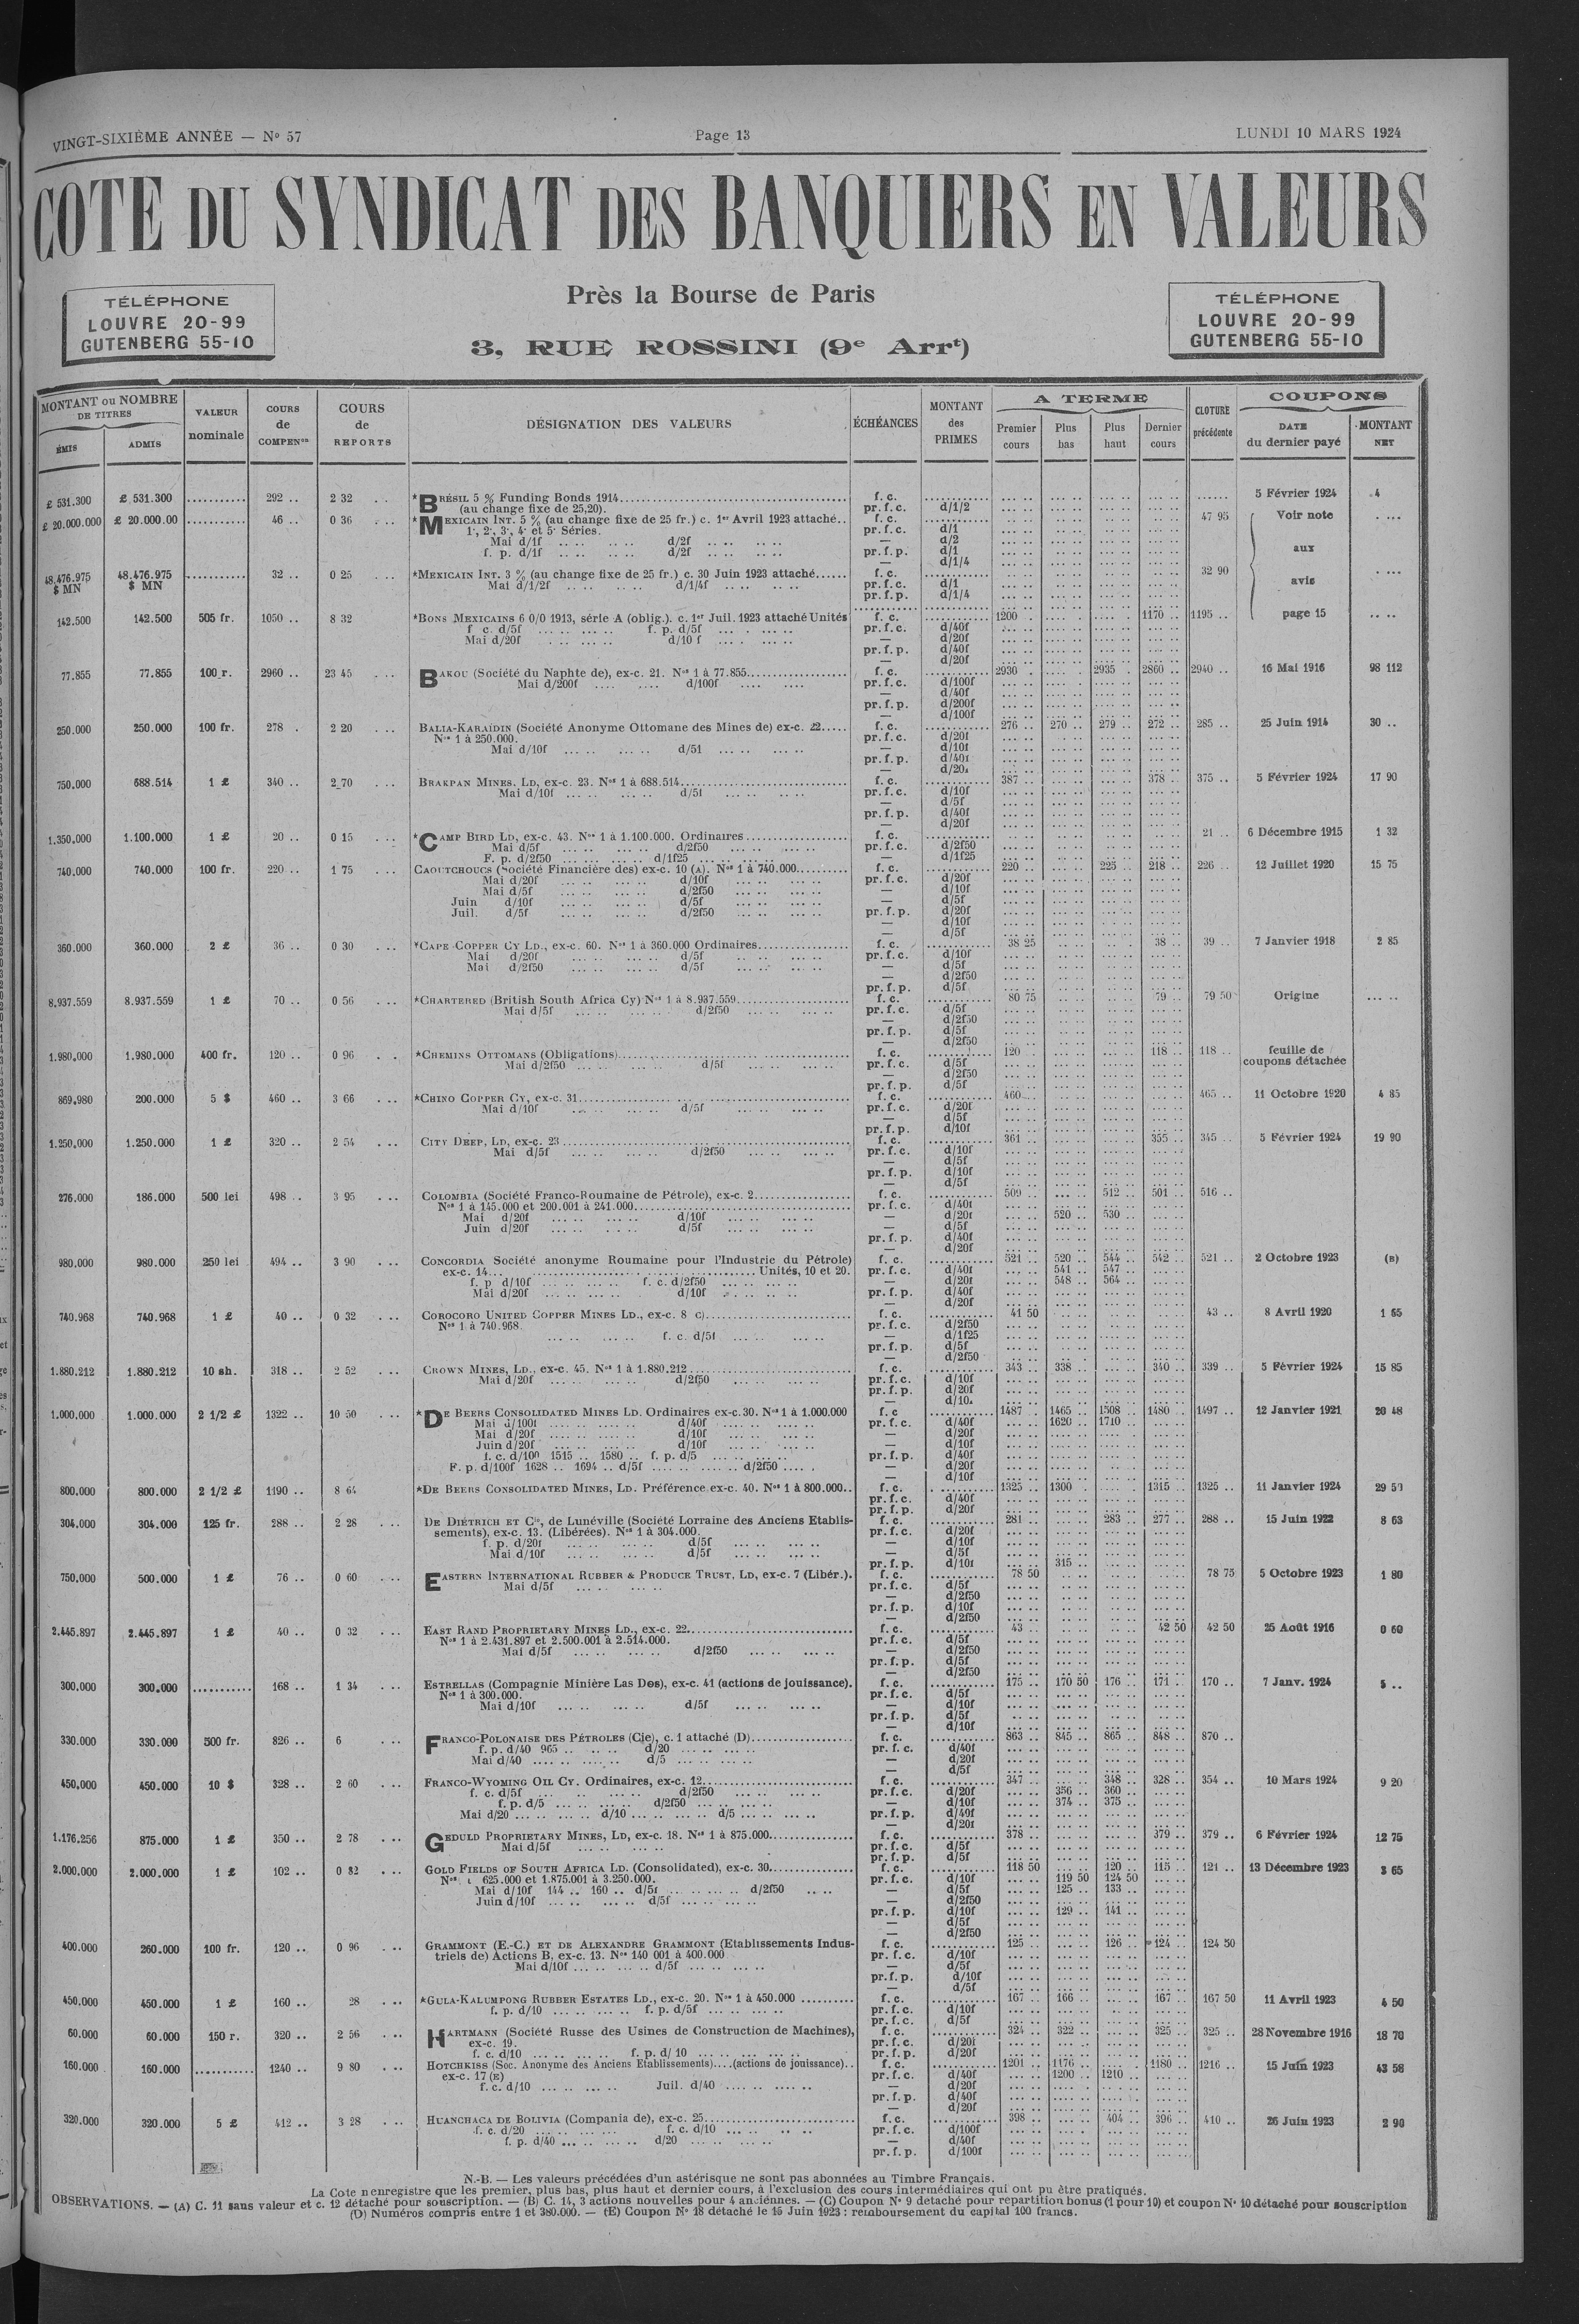 VINGT-SIXIÈME ANNÉE — Nº 57
Page 13
LUNDI 10 MARS 1924
COTE DU SYNDICAT DES BANQUIERS EN VALEURS
TÉLÉPHONE
LOUVRE 20-99
GUTENBERG 55-10
Près la Bourse de Paris
3, RUE ROSSINI (9e Arrt)
TÉLÉPHONE
LOUVRE 20-99
GUTENBERG 55-10
MONTANT ou NOMBRE DE TITRES
ÉMIS
ADMIS
VALEUR nominale
COURS de COMPENon
COURS de REPORTS
DÉSIGNATION DES VALEURS
ÉCHÉANCES
MONTANT des PRIMES
A TERME
Premier cours
Plus bas
Plus haut
Dernier cours
CLOTURE précédente
COUPONS
DATE du dernier payé
MONTANT NET
£ 531.300 £ 531.300 292 .. 2 32 *BRÉSIL 5 % Funding Bonds 1914 f. c. 5 Février 1924 4
(au change fixe de 25,20). pr. f. c. d/1/2
£ 20.000.000 £ 20.000.00 46 .. 0 36 *MEXICAIN INT. 5 % (au change fixe de 25 fr.) c. 1er Avril 1923 attaché.. f. c. 47 95 Voir note
1e, 2e, 3e, 4e et 5e Séries. pr. f. c. d/1
Mai d/1f d/2f — d/2
f. p. d/1f d/2f pr. f. p. d/1 aux
— d/1/4
48.476.975 $ MN 48.476.975 $ MN 32 .. 0 25 *MEXICAIN INT. 3 % (au change fixe de 25 fr.) c. 30 Juin 1923 attaché...... f. c. 32 90
Mai d/1/2f d/1/4f pr. f. c. d/1 avis
pr. f. p. d/1/4
142.500 142.500 505 fr. 1050 .. 8 32 *BONS MEXICAINS 6 0/0 1913, série A (oblig.). c. 1er Juil. 1923 attaché Unités f. c. 1200 1170 .. 1195 .. page 15
f c. d/5f f. p. d/5f pr. f. c. d/40f
Mai d/20f d/10 f — d/20f
pr. f. p. d/40f
— d/20f
77.855 77.855 100 r. 2960 .. 23 45 BAKOU (Société du Naphte de), ex-c. 21. Nos 1 à 77.855 f. c. 2930 2935 2860 .. 2940 .. 16 Mai 1916 98 112
Mai d/200f d/100f pr. f. c. d/100f
— d/40f
pr. f. p. d/200f
— d/100f
250.000 250.000 100 fr. 278 2 20 BALIA-KARAÏDIN (Société Anonyme Ottomane des Mines de) ex-c. 22 f. c. 276 270 .. 279 .. 272 .. 285 .. 25 Juin 1914 30 ..
Nos 1 à 250.000. pr. f. c. d/20f
Mai d/10f d/5f — d/10f
pr. f. p. d/40f
— d/20f
750.000 688.514 1 £ 340 .. 2 70 BRAKPAN MINES. LD, ex-c. 23. Nos 1 à 688.514 f. c. 387 .. 378 .. 375 .. 5 Février 1924 17 90
Mai d/10f d/5f pr. f. c. d/10f
— d/5f
pr. f. p. d/40f
— d/20f
1.350.000 1.100.000 1 £ 20 .. 0 15 *CAMP BIRD LD, ex-c. 43. Nos 1 à 1.100.000. Ordinaires f. c. 21 .. 6 Décembre 1915 1 32
Mai d/5f d/2f50 pr. f. c. d/2f50
F. p. d/2f50 d/1f25 — d/1f25
740.000 740.000 100 fr. 220 .. 1 75 CAOUTCHOUCS (Société Financière des) ex-c. 10 (A). Nos 1 à 740.000 f. c. 220 .. 225 .. 218 .. 226 .. 12 Juillet 1920 15 75
Mai d/20f d/10f pr. f. c. d/20f
Mai d/5f d/2f50 — d/10f
Juin d/10f d/5f — d/5f
Juil. d/5f d/2f50 pr. f. p. d/20f
— d/10f
— d/5f
360.000 360.000 2 £ 36 .. 0 30 *CAPE COPPER CY LD., ex-c. 60. Nos 1 à 360.000 Ordinaires f. c. 38 25 38 .. 39 .. 7 Janvier 1918 2 85
Mai d/20f d/5f pr. f. c. d/10f
Mai d/2f50 d/5f — d/5f
— d/2f50
pr. f. p. d/5f
8.937.559 8.937.559 1 £ 70 .. 0 56 *CHARTERED (British South Africa Cy) Nos 1 à 8.937.559 f. c. 80 75 79 .. 79 50 Origine
Mai d/5f d/2f50 pr. f. c. d/5f
— d/2f50
pr. f. p. d/5f
— d/2f50
1.980.000 1.980.000 400 fr. 120 .. 0 96 *CHEMINS OTTOMANS (Obligations) f. c. 120 118 .. 118 .. feuille de coupons détachée
Mai d/2f50 d/5f pr. f. c. d/5f
— d/2f50
pr. f. p. d/5f
869.980 200.000 5 $ 460 .. 3 66 *CHINO COPPER CY, ex-c. 31 f. c. 460 465 .. 11 Octobre 1920 4 85
Mai d/10f d/5f pr. f. c. d/20f
— d/5f
pr. f. p. d/10f
1.250.000 1.250.000 1 £ 320 .. 2 54 CITY DEEP, LD, ex-c. 23 f. c. 361 355 .. 345 .. 5 Février 1924 19 90
Mai d/5f d/2f50 pr. f. c. d/10f
— d/5f
pr. f. p. d/10f
— d/5f
276.000 186.000 500 lei 498 .. 3 95 COLOMBIA (Société Franco-Roumaine de Pétrole), ex-c. 2 f. c. 509 .. 512 .. 501 .. 516 ..
Nos 1 à 145.000 et 200.001 à 241.000 pr. f. c. d/40f
Mai d/20f d/10f — d/20f 520 .. 530 ..
Juin d/20f d/5f — d/5f
pr. f. p. d/40f
— d/20f
980.000 980.000 250 lei 494 .. 3 90 CONCORDIA Société anonyme Roumaine pour l'Industrie du Pétrole) f. c. 521 520 .. 544 .. 542 .. 521 .. 2 Octobre 1923 (B)
ex-c. 14 Unités, 10 et 20. pr. f. c. d/40f 541 .. 547 ..
f. p d/10f f. c. d/2f50 — d/20f 548 .. 564 ..
Mai d/20f d/10f pr. f. p. d/40f
— d/20f
740.968 740.968 1 £ 40 .. 0 32 COROCORO UNITED COPPER MINES LD., ex-c. 8 C) f. c. 41 50 43 .. 8 Avril 1920 1 65
Nos 1 à 740.968. pr. f. c. d/2f50
f. c. d/5f — d/1f25
pr. f. p. d/5f
— d/2f50
1.880.212 1.880.212 10 sh. 318 .. 2 52 CROWN MINES, LD., ex-c. 45. Nos 1 à 1.880.212 f. c. 343 .. 338 .. 340 .. 339 .. 5 Février 1924 15 85
Mai d/20f d/2f50 pr. f. c. d/10f
pr. f. p. d/20f
— d/10f
1.000.000 1.000.000 2 1/2 £ 1322 .. 10 50 *DE BEERS CONSOLIDATED MINES LD. Ordinaires ex-c. 30. Nos 1 à 1.000.000 f. c 1487 1465 .. 1508 .. 1480 .. 1497 .. 12 Janvier 1921 20 48
Mai d/100f d/40f pr. f. c. d/40f 1620 .. 1710 ..
Mai d/20f d/10f — d/20f
Juin d/20f d/10f — d/10f
f. c. d/100 1515 .. 1580 .. f. p. d/5 pr. f. p. d/40f
F. p. d/100f 1628 .. 1694 .. d/5f d/2f50 — d/20f
— d/10f
800.000 800.000 2 1/2 £ 1190 .. 8 64 *DE BEERS CONSOLIDATED MINES, LD. Préférence ex-c. 40. Nos 1 à 800.000.. f. c. 1325 .. 1300 1315 .. 1325 .. 11 Janvier 1924 29 50
pr. f. c. d/40f
pr. f. p. d/20f
304.000 304.000 125 fr. 288 .. 2 28 DE DIÉTRICH ET Cie, de Lunéville (Société Lorraine des Anciens Etablis- f. c. 281 .. 283 .. 277 .. 288 .. 15 Juin 1922 8 63
sements), ex-c. 13. (Libérées). Nos 1 à 304.000. pr. f. c. d/20f
f. p. d/20f d/5f — d/10f
Mai d/10f d/5f — d/5f
pr. f. p. d/10f 315 ..
750.000 500.000 1 £ 76 .. 0 60 EASTERN INTERNATIONAL RUBBER & PRODUCE TRUST, LD, ex-c. 7 (Libér.). f. c. 78 50 78 75 5 Octobre 1923 1 80
Mai d/5f pr. f. c. d/5f
— d/2f50
pr. f. p. d/10f
— d/2f50
2.445.897 2.445.897 1 £ 40 .. 0 32 EAST RAND PROPRIETARY MINES LD., ex-c. 22 f. c. 43 42 50 42 50 25 Août 1916 0 60
Nos 1 à 2.431.897 et 2.500.001 à 2.514.000. pr. f. c. d/5f
Mai d/5f d/2f50 — d/2f50
pr. f. p. d/5f
— d/2f50
300.000 300.000 168 .. 1 34 ESTRELLAS (Compagnie Minière Las Dos), ex-c. 41 (actions de jouissance). f. c. 175 .. 170 50 176 .. 171 .. 170 .. 7 Janv. 1924 5 ..
Nos 1 à 300.000. pr. f. c. d/5f
Mai d/10f d/5f — d/10f
pr. f. p. d/5f
— d/10f
330.000 330.000 500 fr. 826 .. 6 FRANCO-POLONAISE DES PÉTROLES (Cie), c. 1 attaché (D) f. c. 863 .. 845 .. 865 .. 848 .. 870 ..
f. p. d/40 965 .. d/20 pr. f. c. d/40f
Mai d/40 d/5 — d/20f
— d/5f
450.000 450.000 10 $ 328 .. 2 60 FRANCO-WYOMING OIL CY. Ordinaires, ex-c. 12 f. c. 347 .. 348 .. 328 .. 354 .. 10 Mars 1924 9 20
f. c. d/5f d/2f50 pr. f. c. d/20f 356 .. 360 ..
f. p. d/5 d/2f50 — d/10f 374 .. 375 ..
Mai d/20 d/10 d/5 pr. f. p. d/40f
— d/20f
1.176.256 875.000 1 £ 350 .. 2 78 GEDULD PROPRIETARY MINES, LD, ex-c. 18. Nos 1 à 875.000 f. c. 378 .. 379 .. 379 .. 6 Février 1924 12 75
Mai d/5f pr. f. c. d/5f
pr. f. p. d/5f
2.000.000 2.000.000 1 £ 102 .. 0 82 GOLD FIELDS OF SOUTH AFRICA LD. (Consolidated), ex-c. 30 f. c. 118 50 120 .. 115 .. 121 .. 13 Décembre 1923 3 65
Nos 625.000 et 1.875.001 à 3.250.000. pr. f. c. d/10f 119 50 124 50
Mai d/10f 144 .. 160 .. d/5f d/2f50 — d/5f 125 .. 133 ..
Juin d/10f d/5f — d/2f50
pr. f. p. d/10f 129 .. 141 ..
— d/5f
— d/2f50
400.000 260.000 100 fr. 120 .. 0 96 GRAMMONT (E.-C.) ET DE ALEXANDRE GRAMMONT (Etablissements Indus- f. c. 125 .. 126 .. 124 .. 124 50
triels de) Actions B, ex-c. 13. Nos 140 001 à 400.000 pr. f. c. d/10f
Mai d/10f d/5f — d/5f
pr. f. p. d/10f
— d/5f
450.000 450.000 1 £ 160 .. 28 *GULA-KALUMPONG RUBBER ESTATES LD., ex-c. 20. Nos 1 à 450.000 f. c. 167 .. 166 .. 167 .. 167 50 11 Avril 1923 4 50
f. p. d/10 f. p. d/5f pr. f. c. d/10f
pr. f. c. d/5f
60.000 60.000 150 r. 320 .. 2 56 HARTMANN (Société Russe des Usines de Construction de Machines), f. c. 324 .. 322 .. 325 .. 325 .. 28 Novembre 1916 18 70
ex-c. 19. pr. f. c. d/20f
f. c. d/10 f. p. d/ 10 pr. f. p. d/20f
160.000 160.000 1240 .. 9 80 HOTCHKISS (Soc. Anonyme des Anciens Etablissements)....(actions de jouissance).. f. c. 1201 .. 1176 1180 .. 1216 .. 15 Juin 1923 43 58
ex-c. 17 (E) pr. f. c. d/40f 1200 .. 1210 ..
f. c. d/10 Juil. d/40 — d/20f
pr. f. p. d/40f
— d/20f
320.000 320.000 5 £ 412 .. 3 28 HUANCHACA DE BOLIVIA (Compania de), ex-c. 25 f. c. 398 .. 404 .. 396 .. 410 .. 26 Juin 1923 2 90
f. c. d/20 f. c. d/10 pr. f. c. d/100f
f. p. d/40 d/20 — d/40f
pr. f. p. d/100f
N.-B. — Les valeurs précédées d'un astérisque ne sont pas abonnées au Timbre Français.
La Cote n enregistre que les premier, plus bas, plus haut et dernier cours, à l'exclusion des cours intermédiaires qui ont pu être pratiqués.
OBSERVATIONS. — (A) C. 11 sans valeur et c. 12 détaché pour souscription. — (B) C. 14, 3 actions nouvelles pour 4 anciennes. — (C) Coupon Nº 9 détaché pour repartition bonus (1 pour 10) et coupon Nº 10 détaché pour souscription
(D) Numéros compris entre 1 et 380.000. — (E) Coupon Nº 18 détaché le 15 Juin 1923 : remboursement du capital 100 francs.